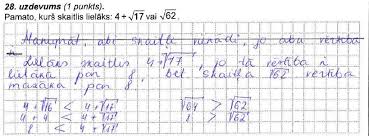 28. uzdevums (1 punkts).
Pamato, kurš skaitlis lielāks: 4 + √17 vai √62.
abi skaitļi vienādi, jo abu vērtība
Lielāks skaitlis 4+√17, jo tā vērtība ir
lielāka par 8, bet skaitļa √62 vērtība
mazāka par 8.
4+√16 < 4+√17 √64 > √62
4+4 < 4+√17 8 > √62
8 < 4+√17